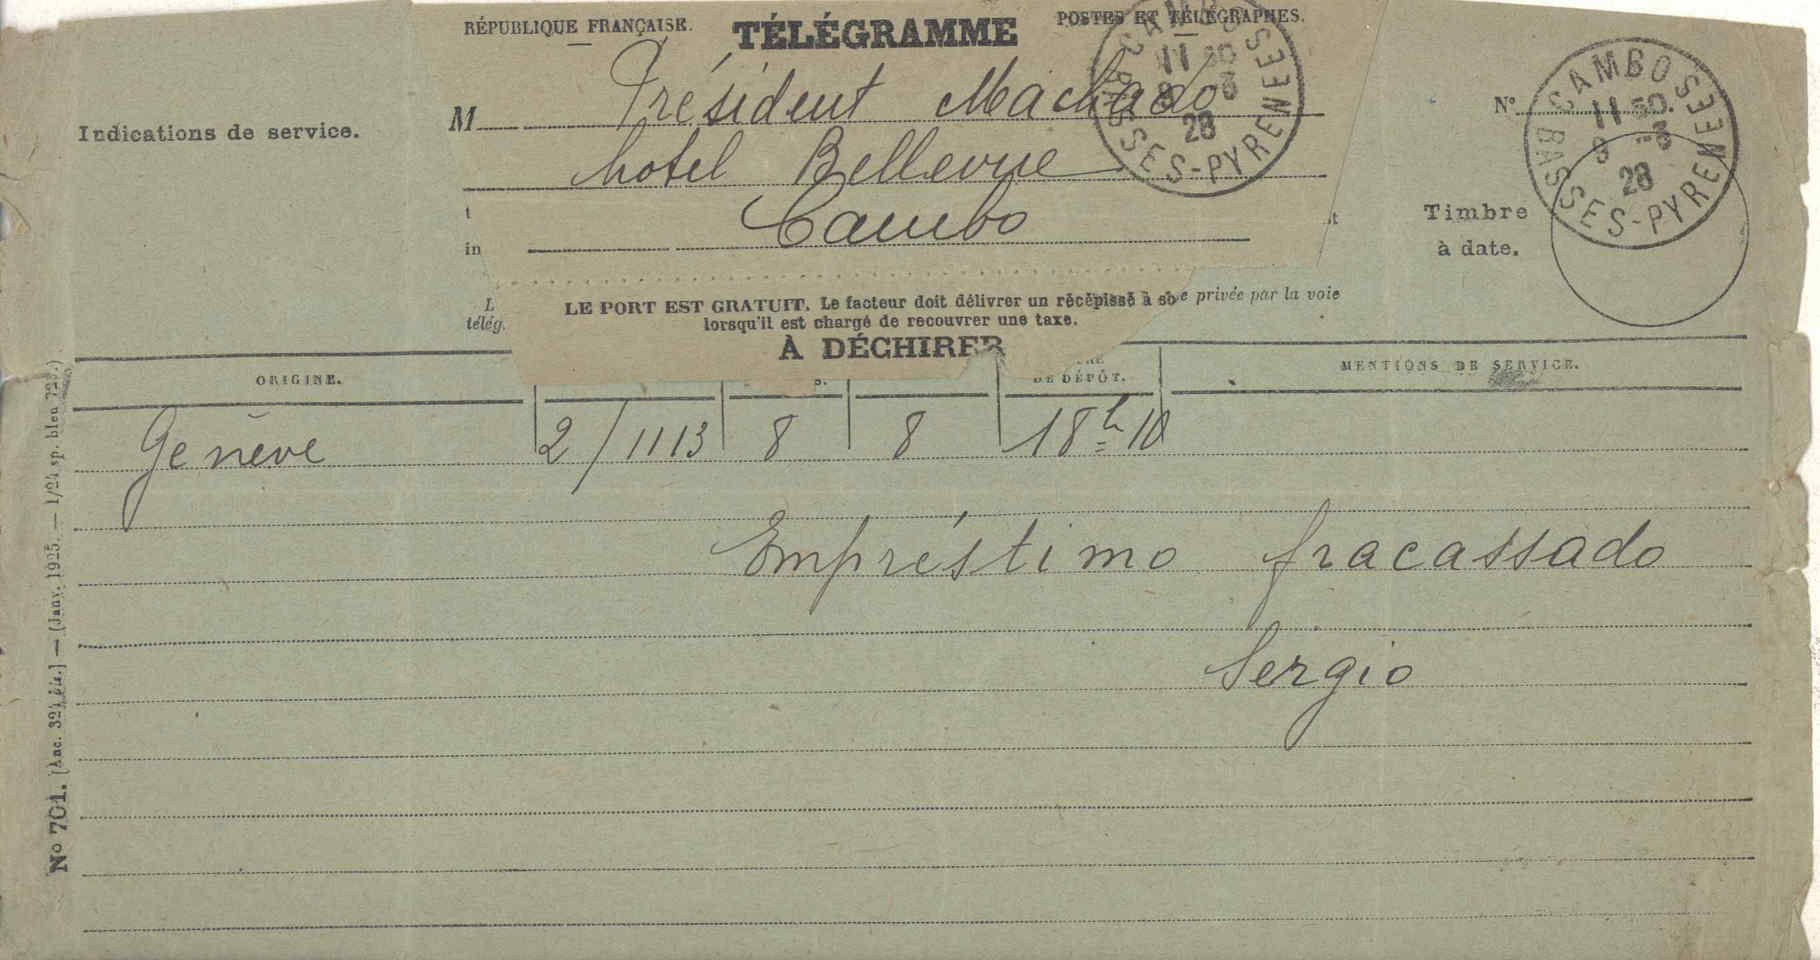 RÉPUBLIQUE FRANÇAISE. TÉLÉGRAMME POSTES ET TÉLÉGRAPHES.
Indications de service.
M Président Machado
hotel Bellevue
Cambo
Nº
CAMBO 11 50 BASSES-PYRENEES
CAMBO 11 50 BASSES-PYRENEES
28
28
Timbre
à date.
t
in
L
télég.
LE PORT EST GRATUIT. Le facteur doit délivrer un récépissé à so
lorsqu'il est chargé de recouvrer une taxe.
e privée par la voie
À DÉCHIRER
ORIGINE. DE DÉPÔT. MENTIONS DE SERVICE.
Genève 2/1113 8 8 18h 10
Empréstimo fracassado
Sergio
Nº 701. [Anc. 324 bis.] — (Janv. 1925. — 1/24 sp. bleu 725.)